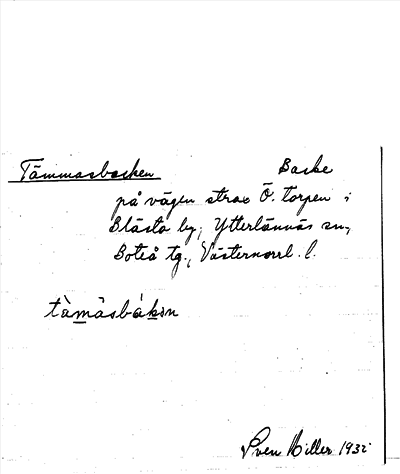 Tämmasbacken Backe
på vägen strax Ö. torpen i
Blästa by, Ytterlännäs sn,
Boteå tg., Västernorrl. l.
tàmasbákən
Sven Hiller 1932